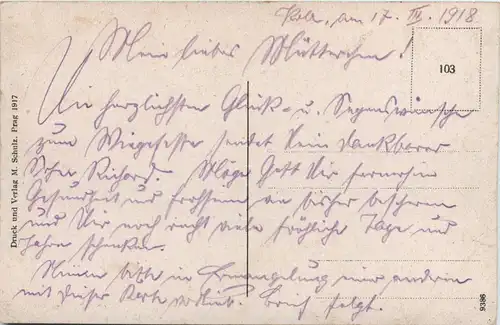 Köln, am 17. IV. 1918
Mein liebes Mütterchen!
103
Die herzlichsten Glück- u. Segenswünsche
zum Wiegenfeste sendet Dein dankbarer
Sohn Richard. Möge Gott Dir fernerhin
Gesundheit und Frohsinn wie bisher bescheren
und Dir noch recht viele fröhliche Tage und
Jahre schenken.
Nimm bitte in Ermangelung einer anderen
mit dieser Karte vorlieb. Brief folgt.
Druck und Verlag M. Schulz, Prag 1917
9386